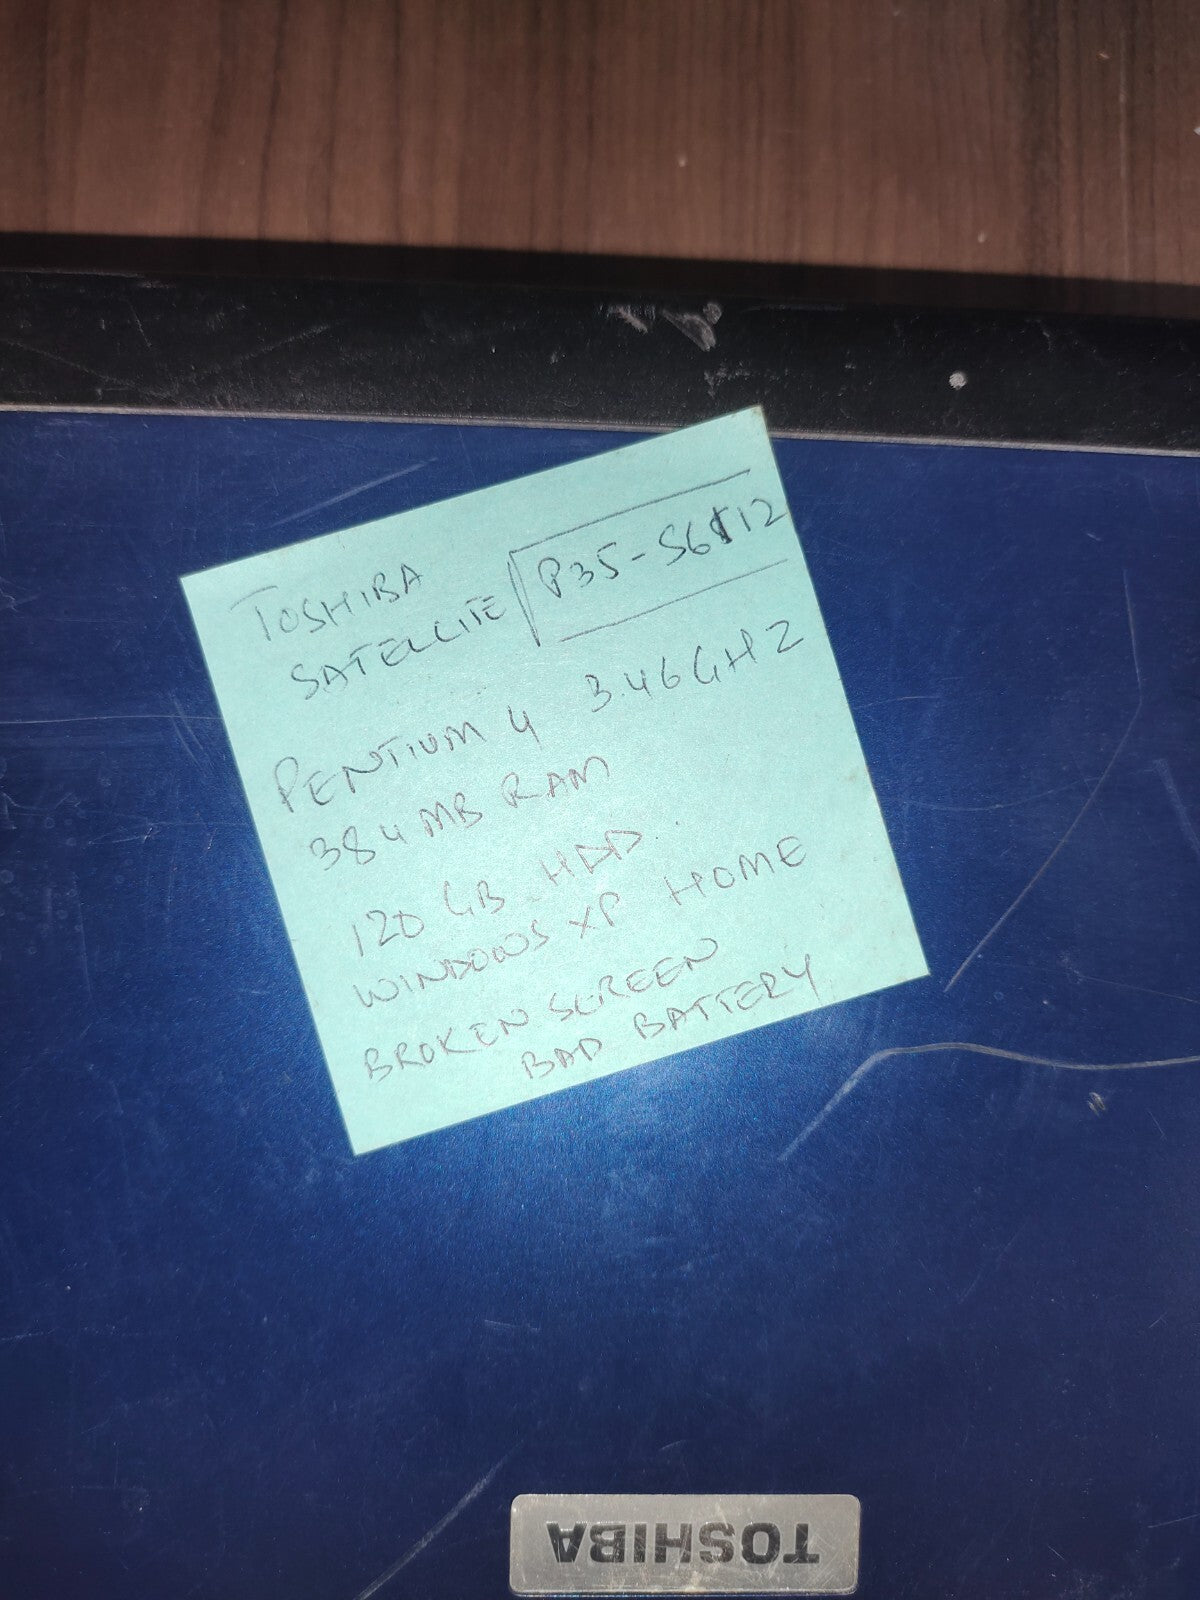 TOSHIBA
SATELLITE P35-S6112
PENTIUM 4 3.46GHZ
384 MB RAM
120 GB HDD
WINDOWS XP HOME
BROKEN SCREEN
BAD BATTERY
TOSHIBA